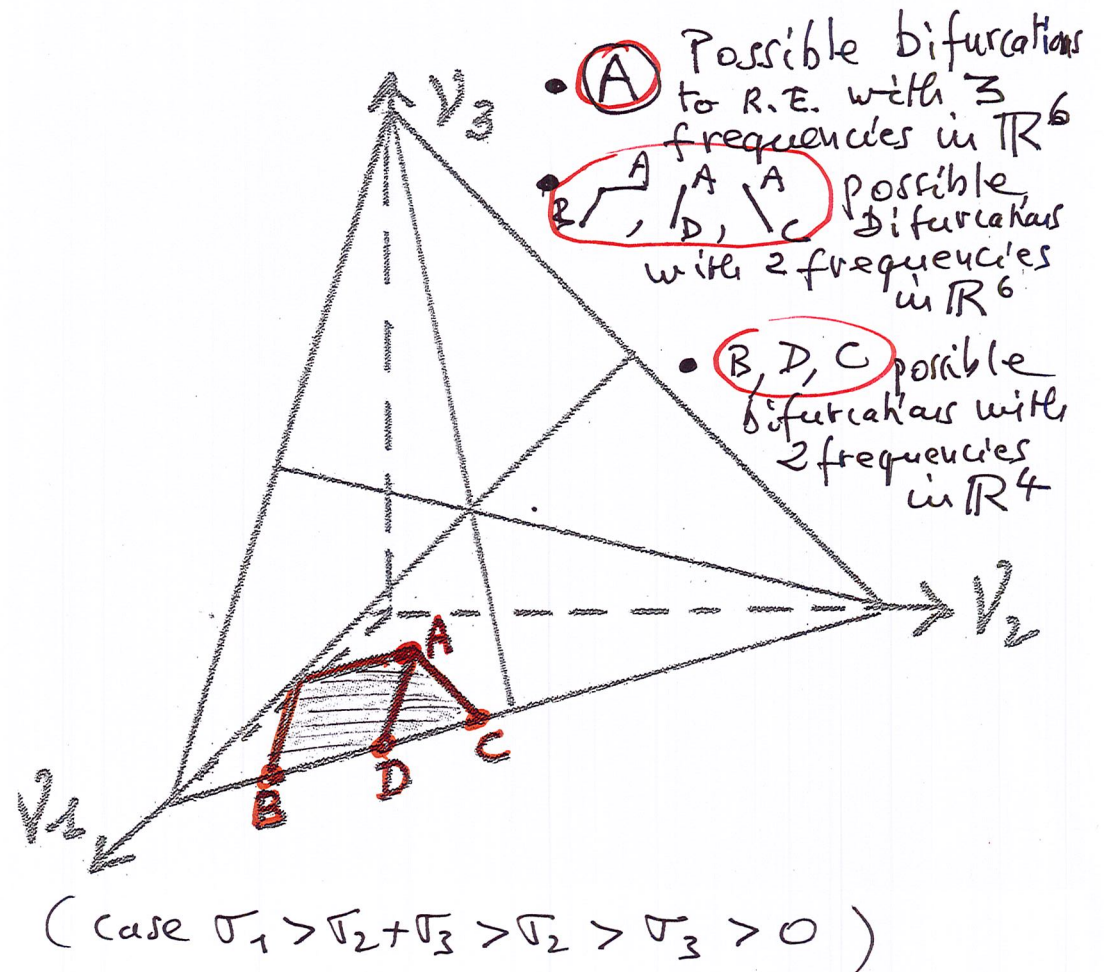 • A Possible bifurcations
to R.E. with 3
frequencies in ℝ⁶
• A A A possible
B , D, C Bifurcations
with 2 frequencies
in ℝ⁶
• B, D, C possible
Bifurcations with
2 frequencies
in ℝ⁴
ν₃
ν₂
A
C
D
B
ν₁
(case σ₁ > σ₂+σ₃ > σ₂ > σ₃ > 0)